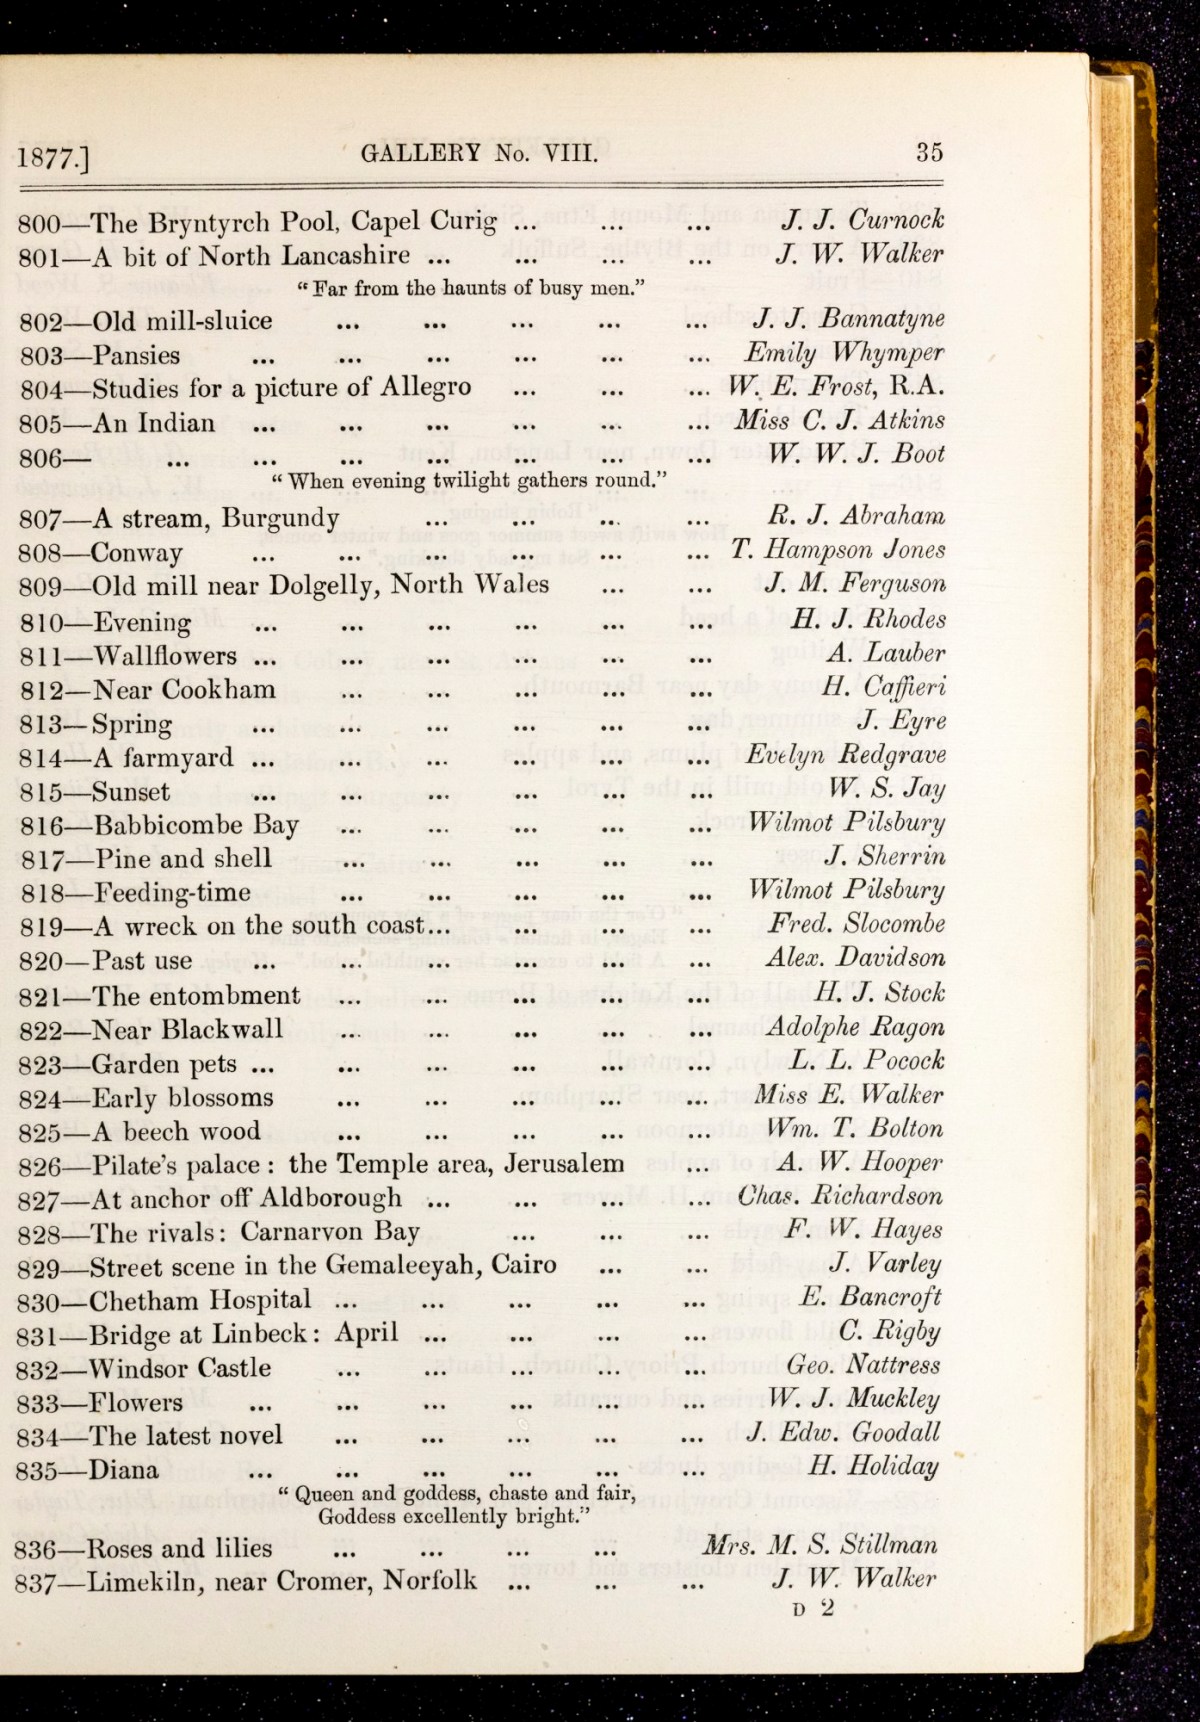 1877.] GALLERY No. VIII. 35
800—The Bryntyrch Pool, Capel Curig ... ... ... J. J. Curnock
801—A bit of North Lancashire ... ... ... ... J. W. Walker
"Far from the haunts of busy men."
802—Old mill-sluice ... ... ... ... ... J. J. Bannatyne
803—Pansies ... ... ... ... ... ... Emily Whymper
804—Studies for a picture of Allegro ... ... ... W. E. Frost, R.A.
805—An Indian ... ... ... ... ... ... Miss C. J. Atkins
806— ... ... ... ... ... ... ... W. W. J. Boot
"When evening twilight gathers round."
807—A stream, Burgundy ... ... ... ... R. J. Abraham
808—Conway ... ... ... ... ... ... T. Hampson Jones
809—Old mill near Dolgelly, North Wales ... ... J. M. Ferguson
810—Evening ... ... ... ... ... ... H. J. Rhodes
811—Wallflowers ... ... ... ... ... ... A. Lauber
812—Near Cookham ... ... ... ... ... H. Caffieri
813—Spring ... ... ... ... ... ... J. Eyre
814—A farmyard ... ... ... ... ... ... Evelyn Redgrave
815—Sunset ... ... ... ... ... ... W. S. Jay
816—Babbicombe Bay ... ... ... ... ... Wilmot Pilsbury
817—Pine and shell ... ... ... ... ... J. Sherrin
818—Feeding-time ... ... ... ... ... Wilmot Pilsbury
819—A wreck on the south coast... ... ... ... Fred. Slocombe
820—Past use ... ... ... ... ... ... Alex. Davidson
821—The entombment ... ... ... ... ... H. J. Stock
822—Near Blackwall ... ... ... ... ... Adolphe Ragon
823—Garden pets ... ... ... ... ... ... L. L. Pocock
824—Early blossoms ... ... ... ... ... Miss E. Walker
825—A beech wood ... ... ... ... ... Wm. T. Bolton
826—Pilate's palace : the Temple area, Jerusalem ... A. W. Hooper
827—At anchor off Aldborough ... ... ... ... Chas. Richardson
828—The rivals : Carnarvon Bay ... ... ... F. W. Hayes
829—Street scene in the Gemaleeyah, Cairo ... ... J. Varley
830—Chetham Hospital ... ... ... ... ... E. Bancroft
831—Bridge at Linbeck : April ... ... ... ... C. Rigby
832—Windsor Castle ... ... ... ... ... Geo. Nattress
833—Flowers ... ... ... ... ... ... W. J. Muckley
834—The latest novel ... ... ... ... ... J. Edw. Goodall
835—Diana ... ... ... ... ... ... H. Holiday
"Queen and goddess, chaste and fair,
Goddess excellently bright."
836—Roses and lilies ... ... ... ... Mrs. M. S. Stillman
837—Limekiln, near Cromer, Norfolk ... ... ... J. W. Walker
D 2